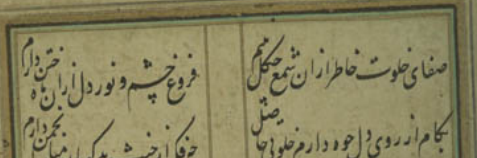 صفای خلوت خاطر ازان شمع چگل بینم
فروغ چشم و نور دل ازان ماه ختن دارم
بکام ارزوی دل چو دارم خلوتی حاصل
چه فکر از خبث بدگویان میان انجمن دارم